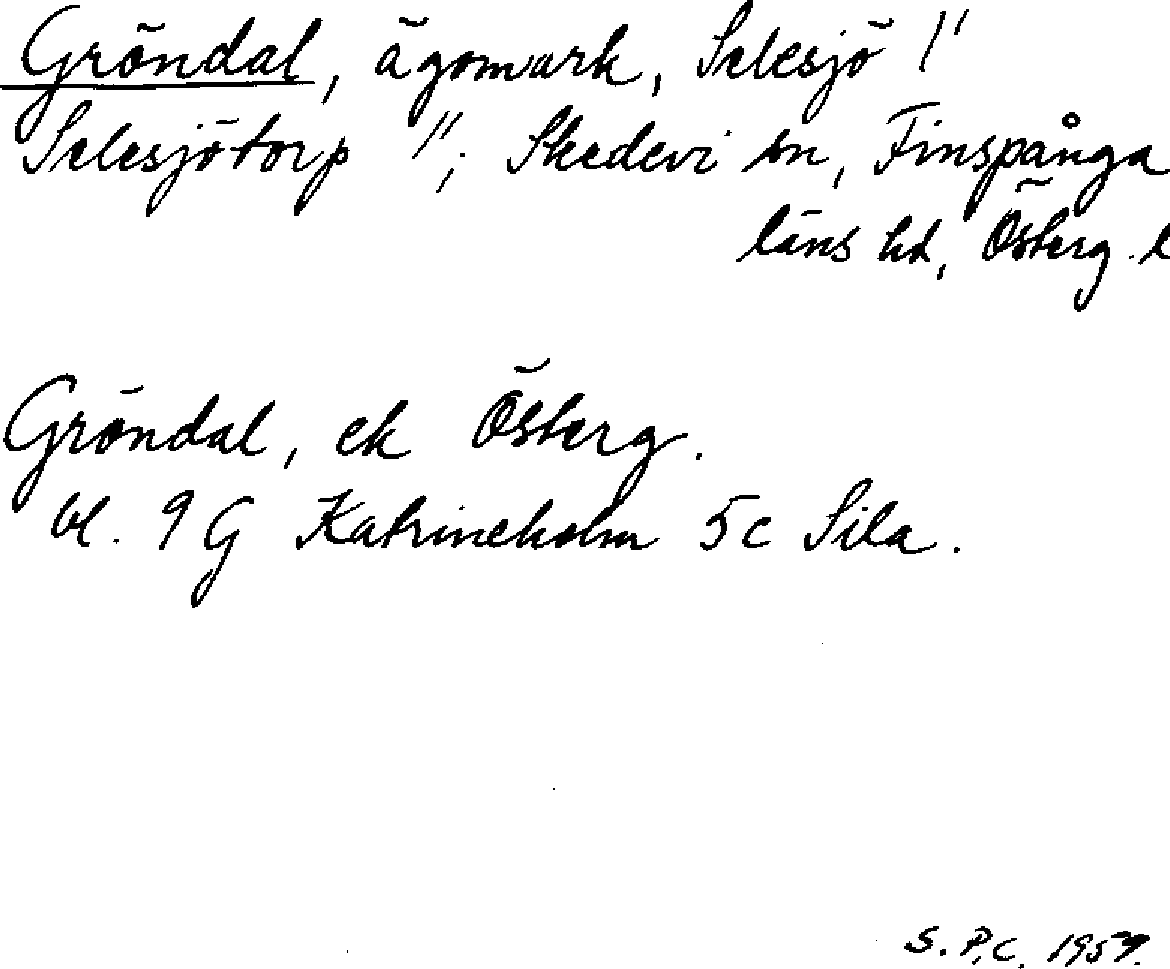 Gröndal, ägomark, Selesjö 1/1
Selesjötorp 1/1; Skedevi sn, Finspånga
läns hd, Österg. l
Gröndal, ek Österg.
bl. 9 G Katrineholm 5c Sila.
S.P.C. 1959.